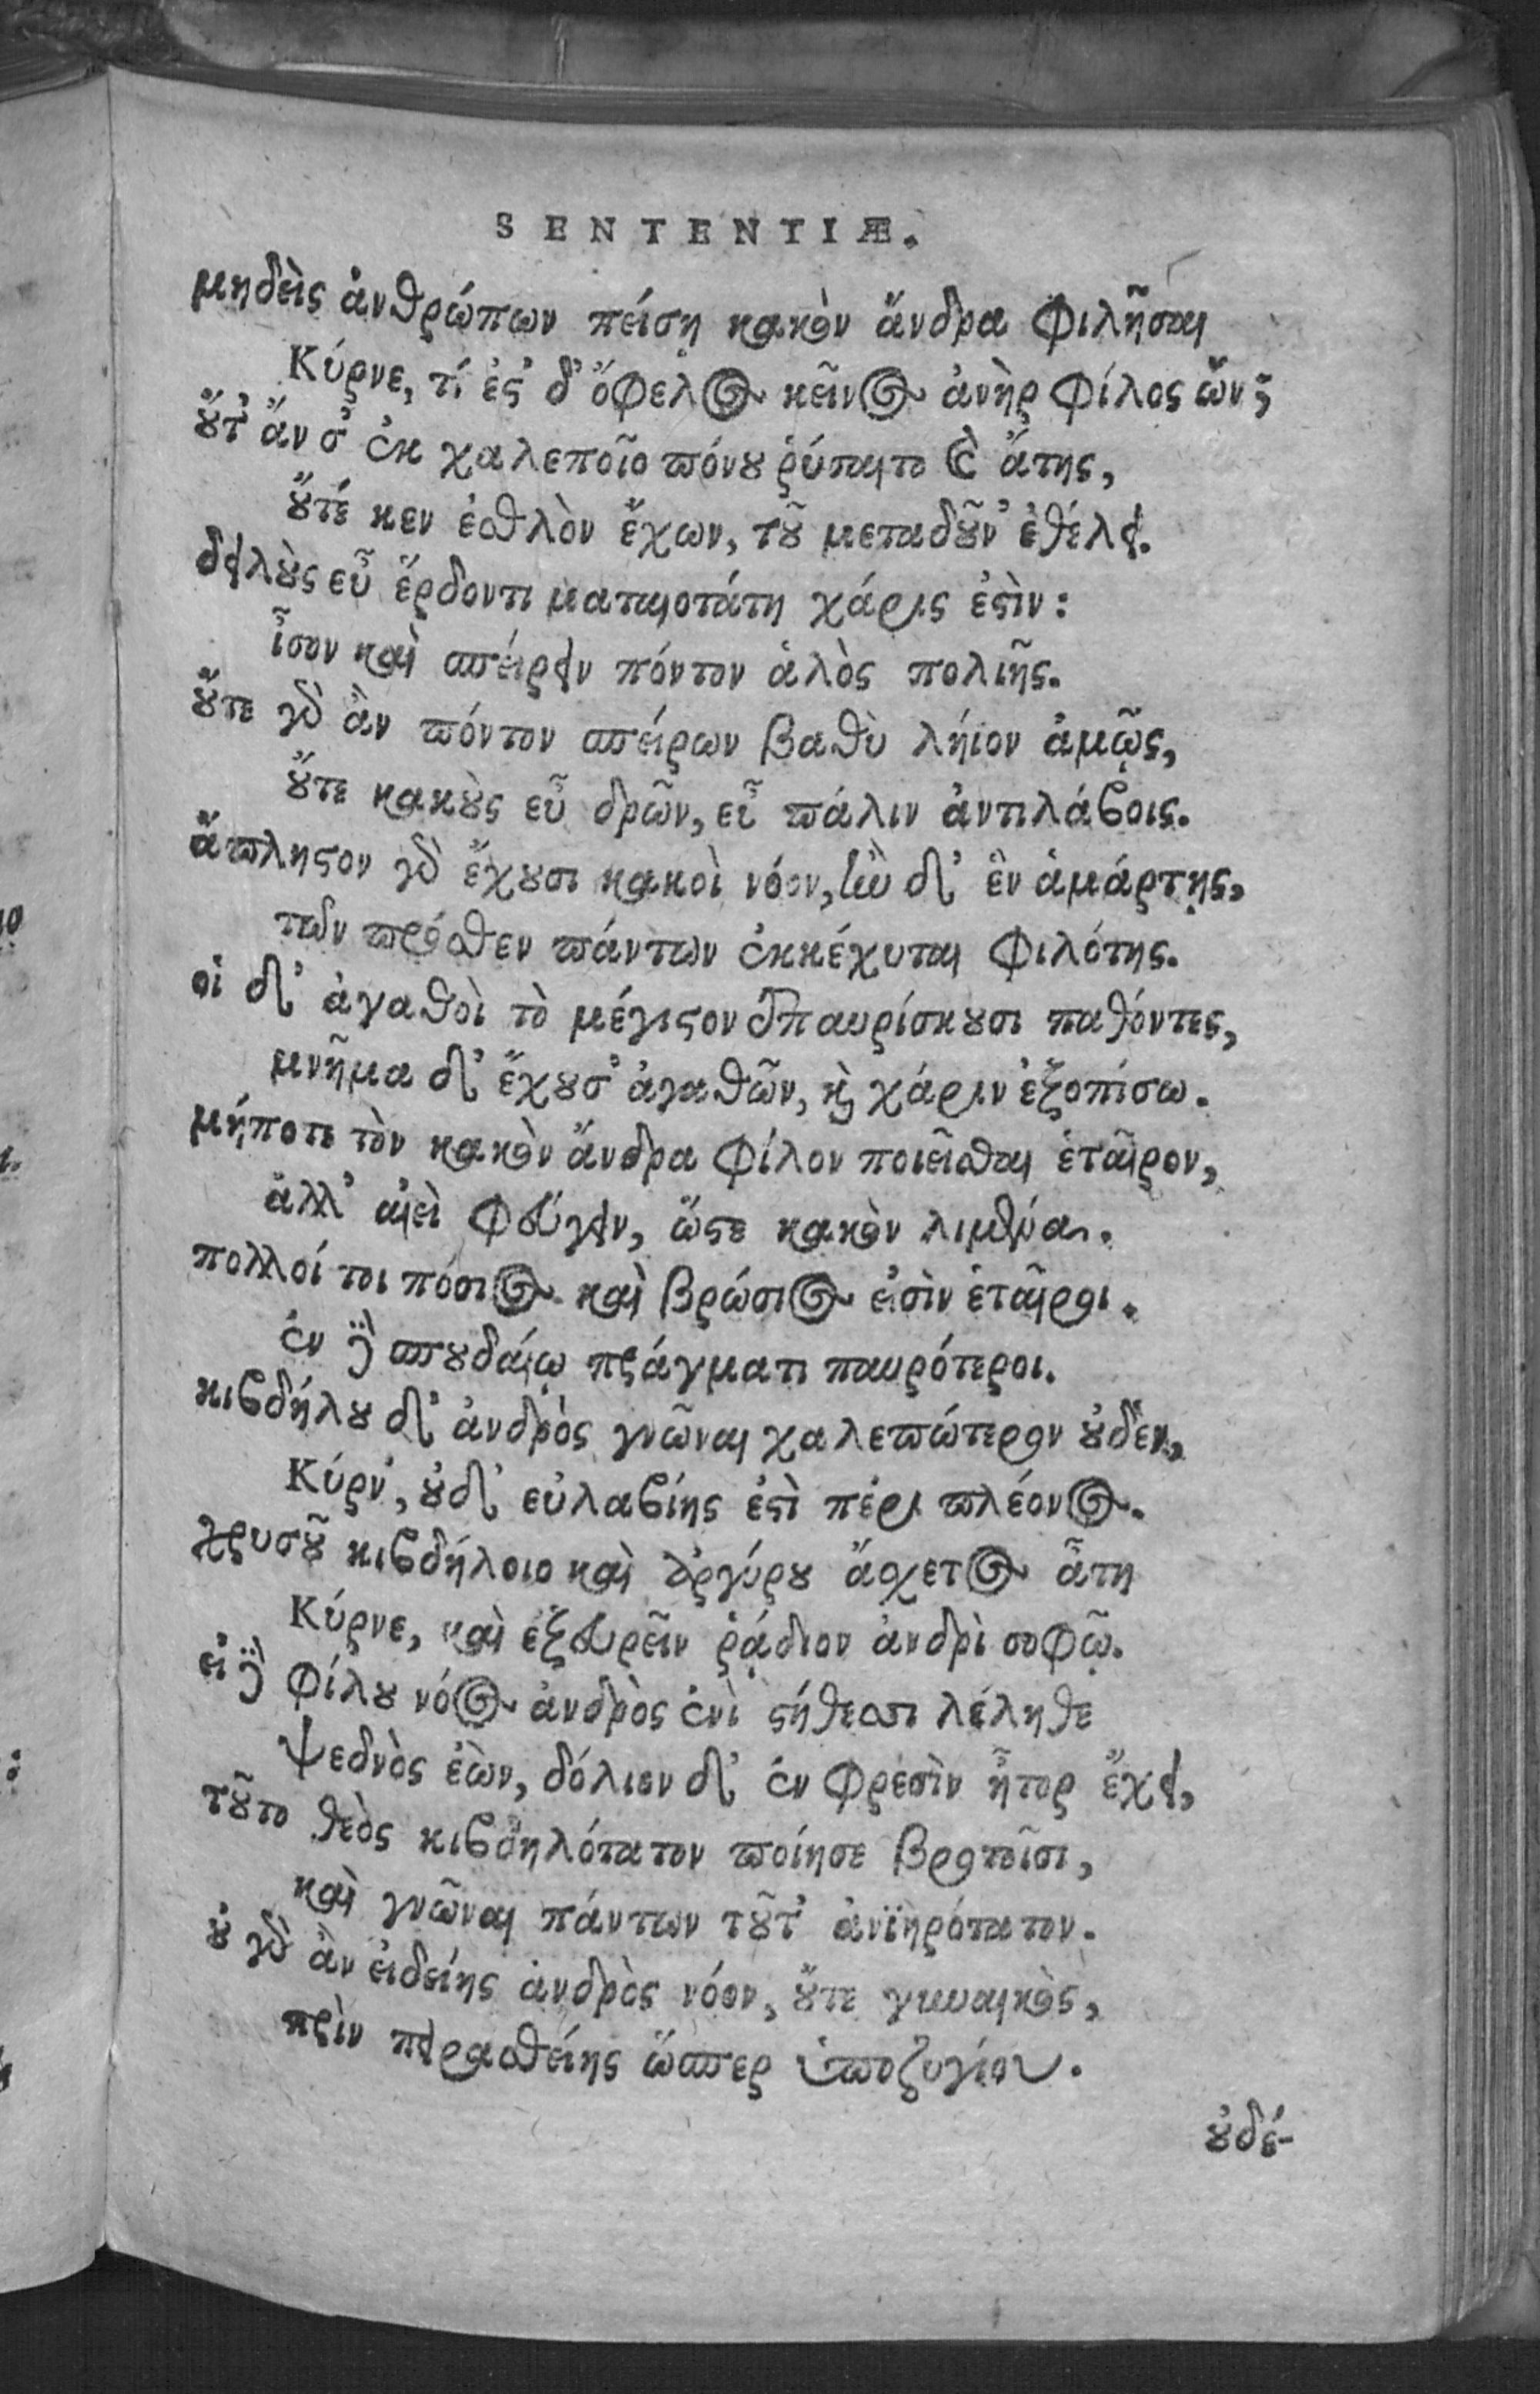 SENTENTIÆ.
μηδεὶς ἀνθρώπων πείσῃ κακὸν ἄνδρα φιλῆσαι
Κύρνε, τί ἐϛ' δ' ὄφελος κεῖνος ἀνὴρ φίλος ὤν;
ȣ̓́τ' ἄν σ' ἐκ χαλεποῖο πόνȣ ῥύσαιτο καὶ ἄτης,
ȣ̓́τέ κεν ἐσθλὸν ἔχων, τȣ͂ μεταδȣ͂ν' ἐθέλει.
δειλȣ̀ς εὖ ἔρδοντι ματαιοτάτη χάρις ἐϛίν:
ἶσον καὶ σπείρειν πόντον ἁλὸς πολιῆς.
ȣ̓́τε γὸ ἂν πόντον σπείρων βαθὺ λήϊον ἀμῷς,
ȣ̓́τε κακȣ̀ς εὖ δρῶν, εὖ πάλιν ἀντιλάβοις.
ἄπληϛον γὸ ἔχȣσι κακοὶ νόον, ἢν δ' ἓν ἁμάρτῃς,
τῶν πρόσθεν πάντων ἐκκέχυται φιλότης.
οἱ δ' ἀγαθοὶ τὸ μέγιϛον ἐπαυρίσκȣσι παθόντες,
μνῆμα δ' ἔχȣσ' ἀγαθῶν, ϗ̀ χάριν ἐξοπίσω.
μήποτε τὸν κακὸν ἄνδρα φίλον ποιεῖσθαι ἑταῖρον,
ἀλλ' αἰεὶ φεύγειν, ὥϛε κακὸν λιμένα.
πολλοί τοι πόσιος καὶ βρώσιος εἰσὶν ἑταῖροι.
ἐν δὲ σπȣδαίῳ πράγματι παυρότεροι.
κιβδήλȣ δ' ἀνδρὸς γνῶναι χαλεπώτερον ȣ̓δὲν,
Κύρν', ȣ̓δ' εὐλαβίης ἐϛὶ πέρι πλέονος.
χρυσȣ͂ κιβδήλοιο καὶ ἀργύρȣ ἄσχετος ἄτη
Κύρνε, καὶ ἐξευρεῖν ῥᾴδιον ἀνδρὶ σοφῷ.
εἰ δὲ φίλȣ νόος ἀνδρὸς ἐνὶ ϛήθεσσι λέληθε
ψεδνὸς ἐὼν, δόλιον δ' ἐν φρεσὶν ἦτορ ἔχει,
τȣ͂το θεὸς κιβδηλότατον ποίησε βροτοῖσι,
καὶ γνῶναι πάντων τȣ͂τ' ἀνιηρότατον.
ȣ̓ γὸ ἂν εἰδείης ἀνδρὸς νόον, ȣ̓́τε γυναικὸς,
πρὶν πειραθείης ὥσπερ ὑποζυγίου.
ȣ̓δέ-